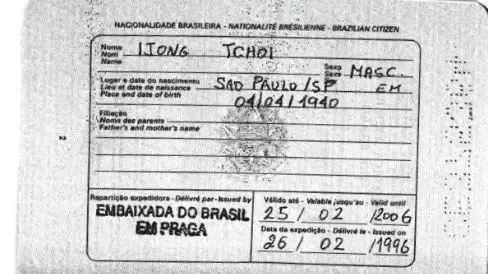 NACIONALIDADE BRASILEIRA - NATIONALITÉ BRÉSILIENNE - BRAZILIAN CITIZEN
Nome
Nom
Name
IJONG TCHOI
Sexo
Sexe
MASC.
Lugar e data do nascimento
Lieu et date de naissance
Place and date of birth
SAO PAULO/SP EM
04/04/1940
Filiação
Noms des parents
Father's and mother's name
2
Repartição expedidora - Délivré par - Issued by
EMBAIXADA DO BRASIL
EM PRAGA
Válido até - Valable jusqu'au - Valid until
25 / 02 /2006
Data da expedição - Délivré le - Issued on
26 / 02 /1996